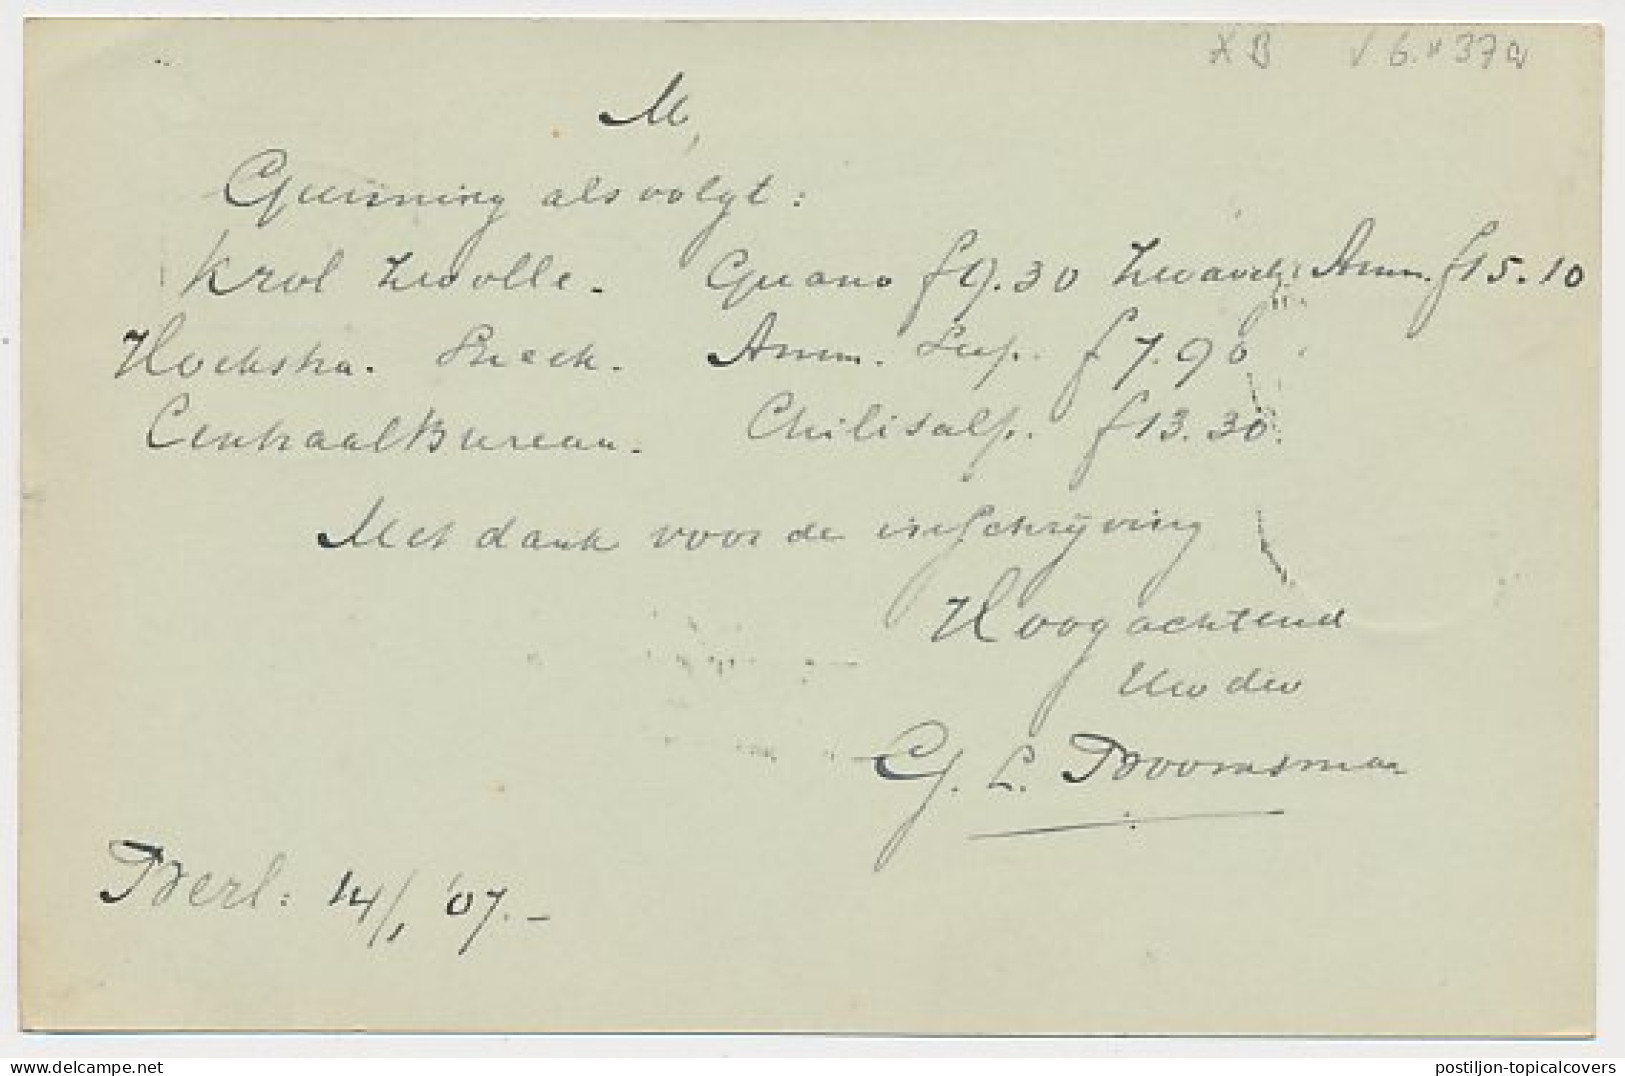 M,
Gunning als volgt:
Krol Zwolle. Guano f 9.30 Zwavelz. Amm. f 15.10
Hoekstra. Sneek. Amm. Sup. f 7.90
Centraal Bureau. Chilisalp. f 13.30.
Met dank voor de inschrijving
Hoogachtend
Uw dw
G. L. Boomsma
Berl: 14/1 '07. –
postiljon-topicalcovers